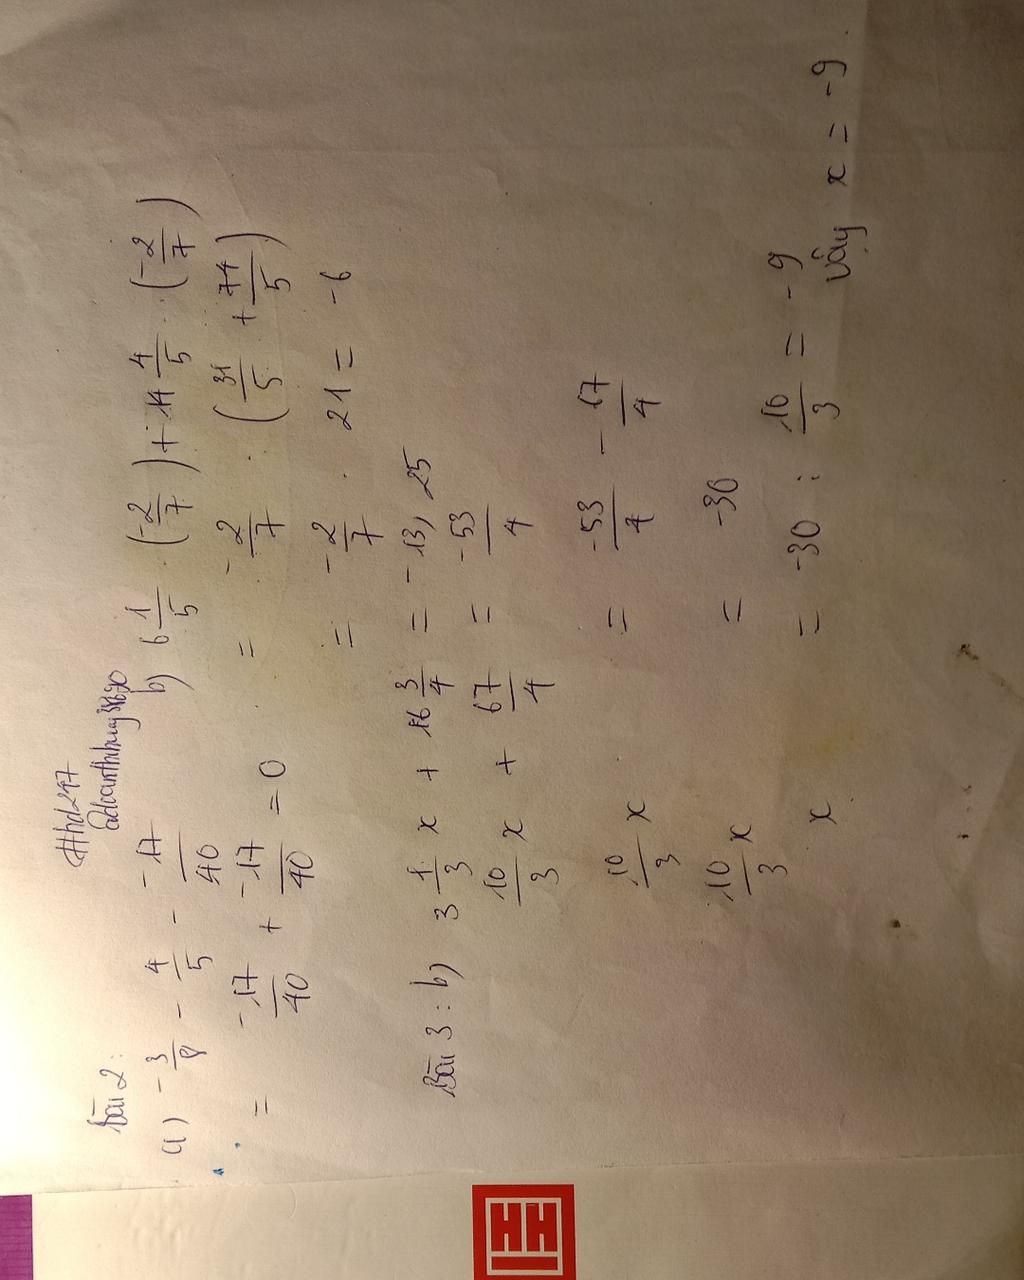 Bài 2:
#hd247
a) -3/8 - 4/5 - -17/40
= -17/40 + -17/40 = 0
b) 6 1/5 . (-2/7) + 14 4/5 . (-2/7)
= -2/7 . (31/5 + 74/5)
= -2/7 . 21 = -6
Bài 3: b) 3 1/3 x + 16 3/4 = -13,25
10/3 x + 67/4 = -53/4
10/3 x = -53/4 - 17/4
10/3 x = -30
x = -30 : 10/3 = -9
Vậy x = -9.
HH